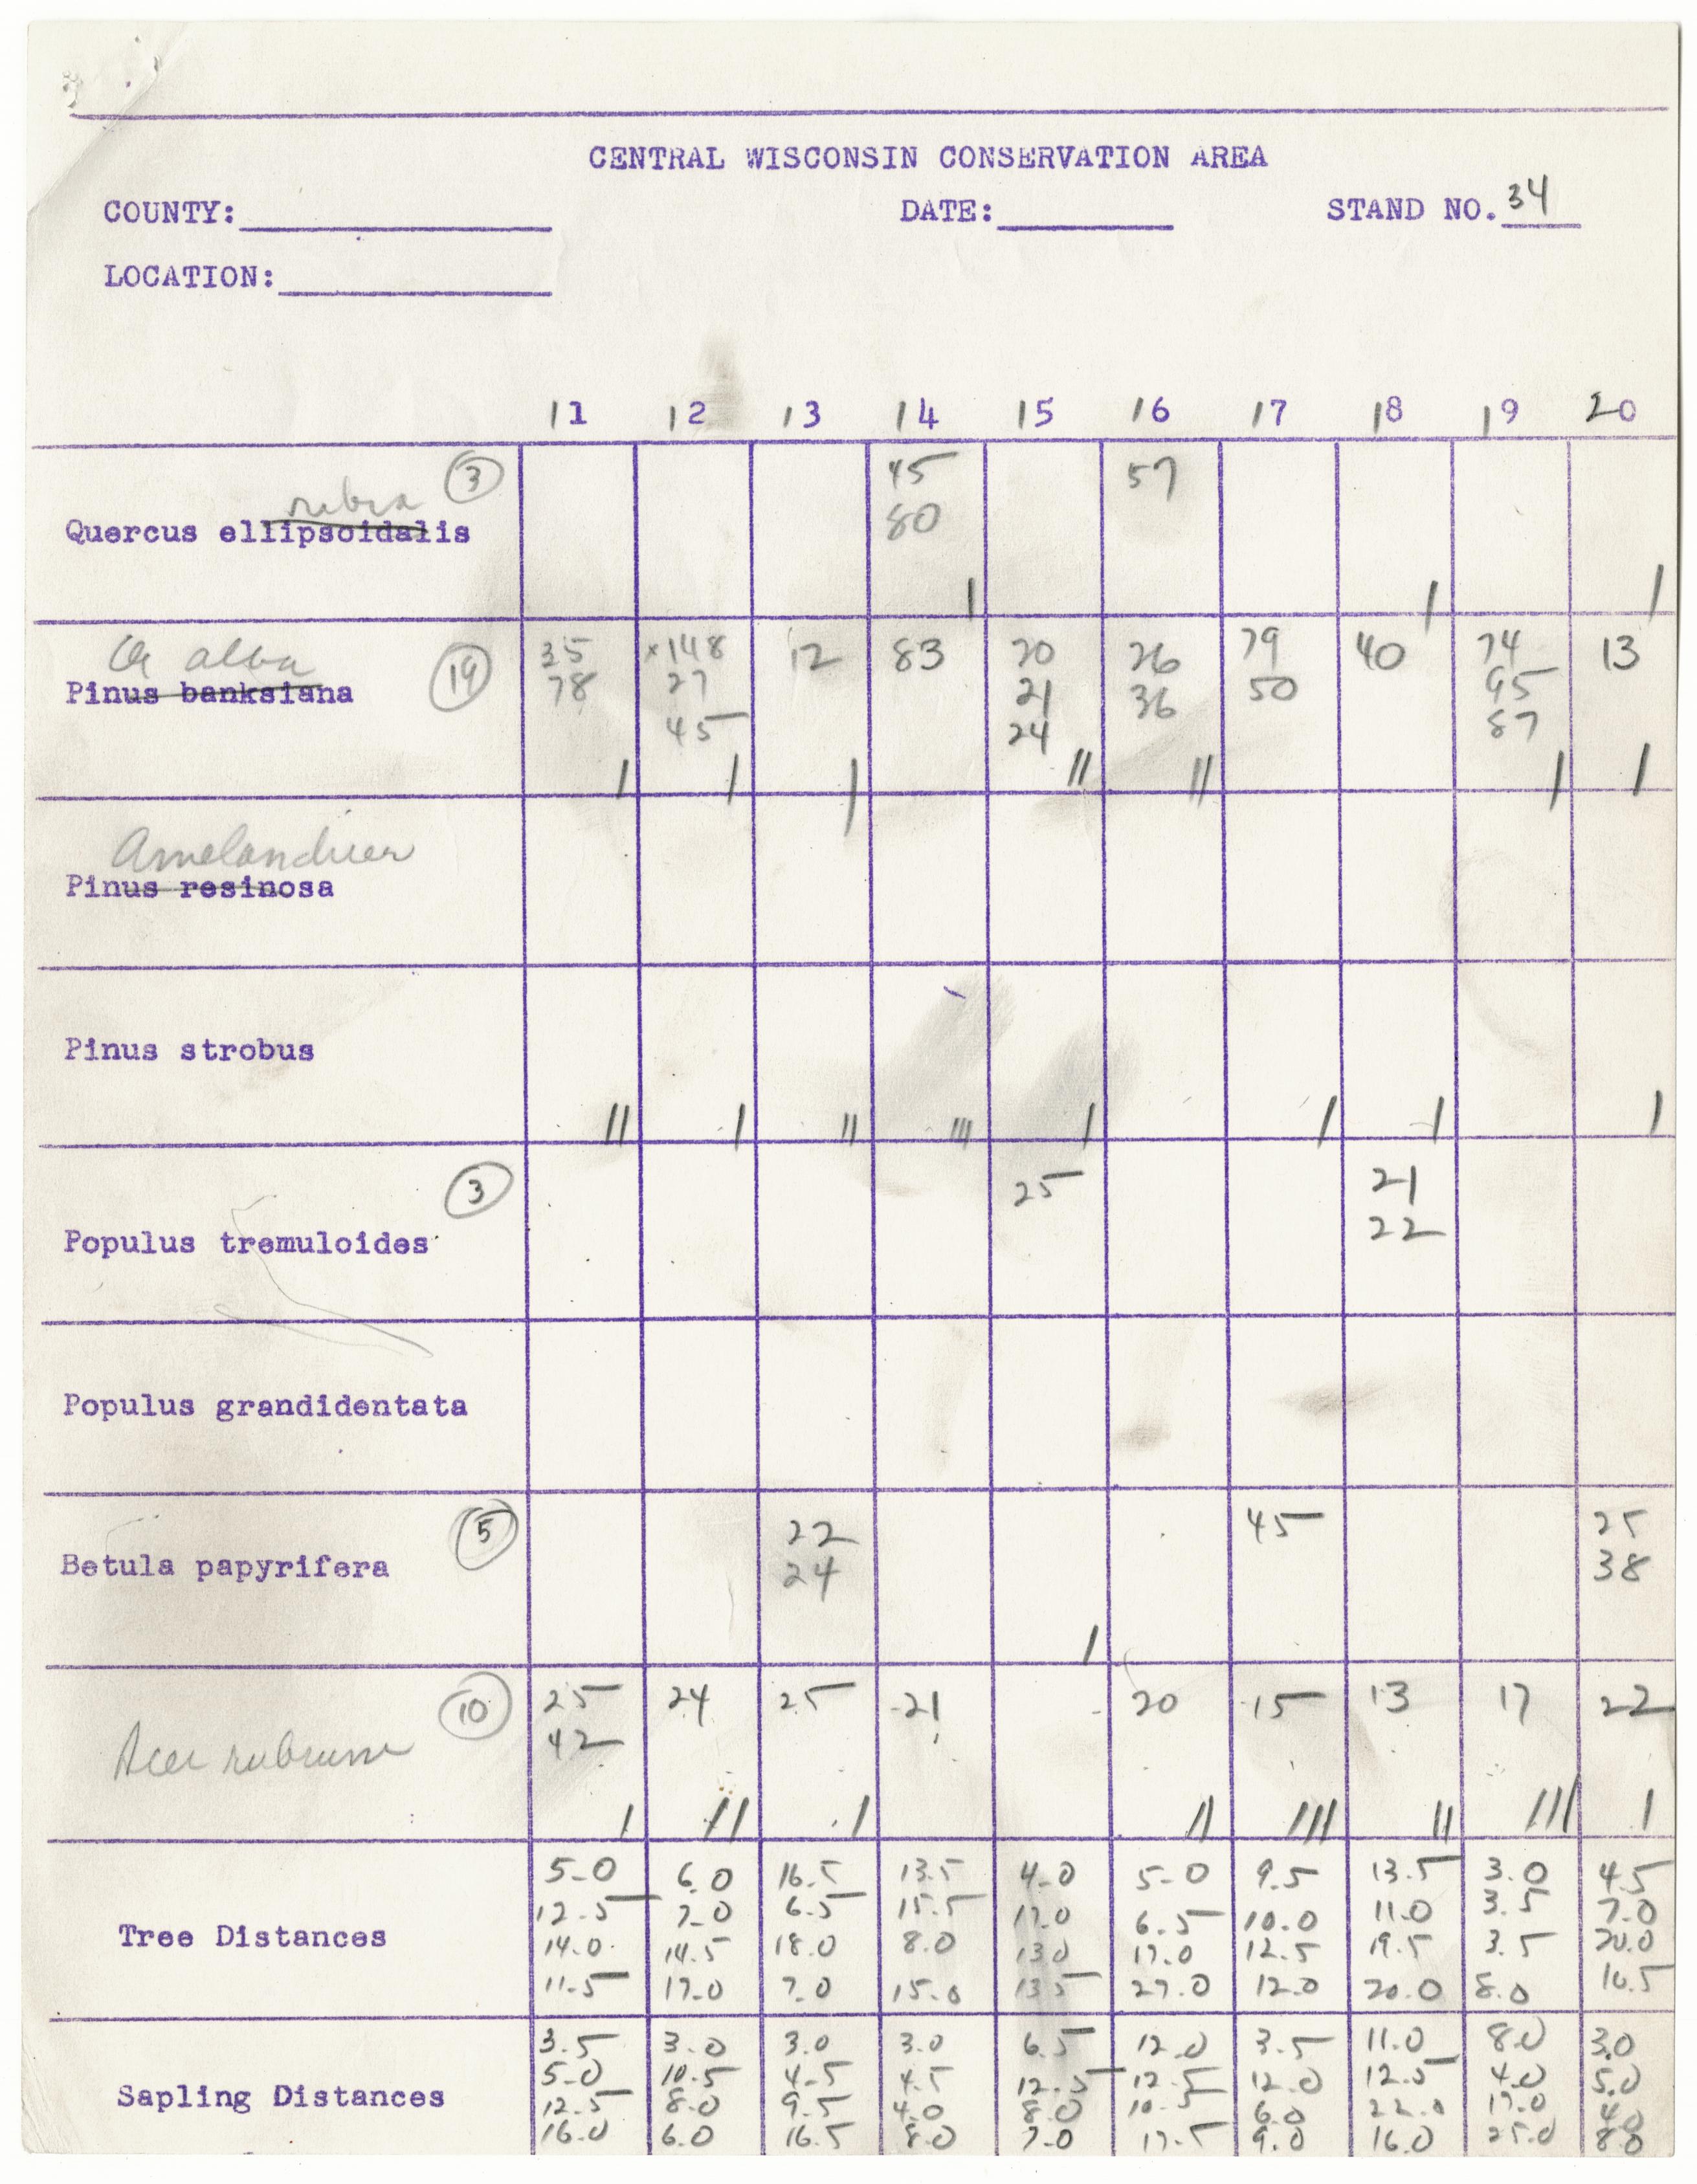 CENTRAL WISCONSIN CONSERVATION AREA
COUNTY: DATE: STAND NO. 34
LOCATION:
11 12 13 14 15 16 17 18 19 20
3 45 57
rubra 80
Quercus ellipsoidalis
| | |
Q alba 19 35 ×148 12 83 20 26 79 40 74 13
Pinus banksiana 78 27 21 36 50 95
45 24 87
| | | || || | |
Amelanchier
Pinus resinosa
Pinus strobus
|| | || ||| | | | |
3 25 21
Populus tremuloides 22
Populus grandidentata
5 22 45 25
Betula papyrifera 24 38
|
10 25 24 25 21 20 15 13 17 22
Acer rubrum 42
| || | || ||| || ||| |
5.0 6.0 16.5 13.5 4.0 5.0 9.5 13.5 3.0 4.5
12.5 7.0 6.5 15.5 17.0 6.5 10.0 11.0 3.5 7.0
Tree Distances 14.0 14.5 18.0 8.0 13.0 17.0 12.5 19.5 3.5 20.0
11.5 17.0 7.0 15.0 13.5 27.0 12.0 20.0 8.0 16.5
3.5 3.0 3.0 3.0 6.5 12.0 3.5 11.0 8.0 3.0
5.0 10.5 4.5 4.5 12.5 12.5 12.0 12.5 4.0 5.0
Sapling Distances 12.5 8.0 9.5 4.0 8.0 10.5 6.0 22.0 17.0 4.0
16.0 6.0 16.5 8.0 7.0 17.5 9.0 16.0 25.0 8.0